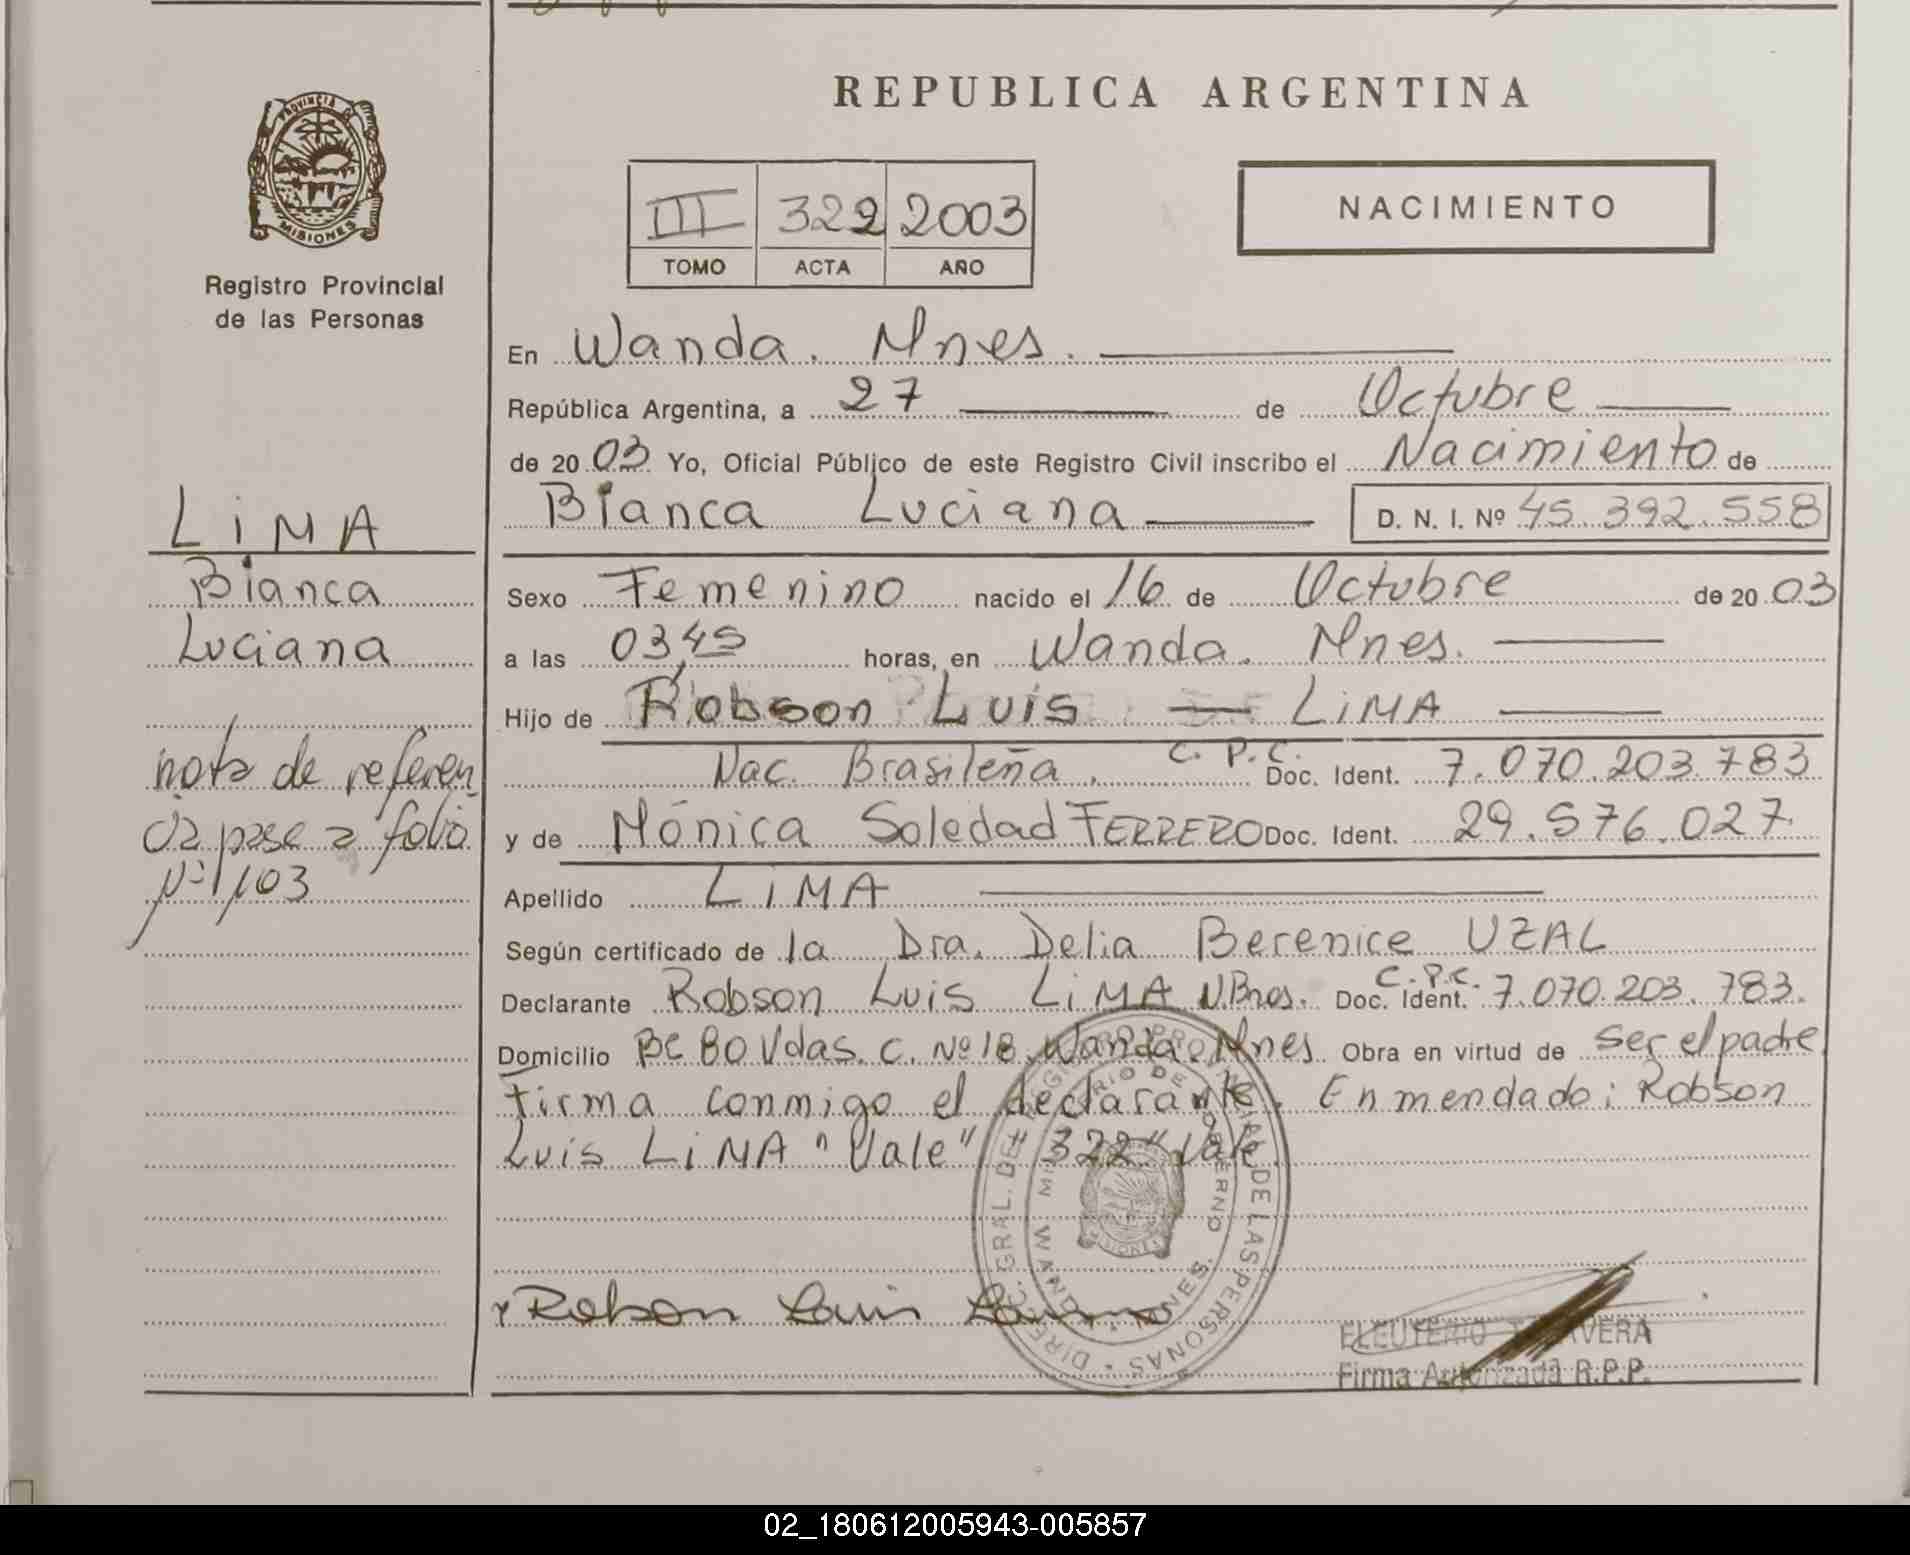 REPUBLICA ARGENTINA
PROVINCIA DE
MISIONES
Registro Provincial
de las Personas
III 322 2003
TOMO ACTA AÑO
NACIMIENTO
En Wanda. Mnes.
República Argentina, a 27 de Octubre
de 2003 Yo, Oficial Público de este Registro Civil inscribo el Nacimiento de
Bianca Luciana D. N. I. Nº 45.392.558
LiMA
Bianca
Luciana
nota de referen
cia pase a folio
Nº 103
Sexo Femenino nacido el 16 de Octubre de 2003
a las 03,45 horas, en Wanda. Mnes.
Hijo de Robson Luis LiMA
Nac. Brasileña. C.P.C. Doc. Ident. 7.070.203.783
y de Mónica Soledad FERRERO Doc. Ident. 29.576.027.
Apellido LiMA
Según certificado de la Dra. Delia Berenice UZAL
Declarante Robson Luis LiMA N.Bras. C.P.C. Doc. Ident. 7.070.203.783.
Domicilio Bº 80 Vdas. C. Nº 18. Wanda. Mnes. Obra en virtud de ser el padre
firma conmigo el declarante. Enmendado: Robson
Luis LiMA "Vale" "322" Vale.
DIREC. GRAL. DEL REGISTRO PROVINCIAL DE LAS PERSONAS
MINISTERIO DE GOBIERNO
WANDA MNES.
MISIONES
Robson Luis
ELEUTERIO TALAVERA
Firma Autorizada R.P.P.
02_180612005943-005857